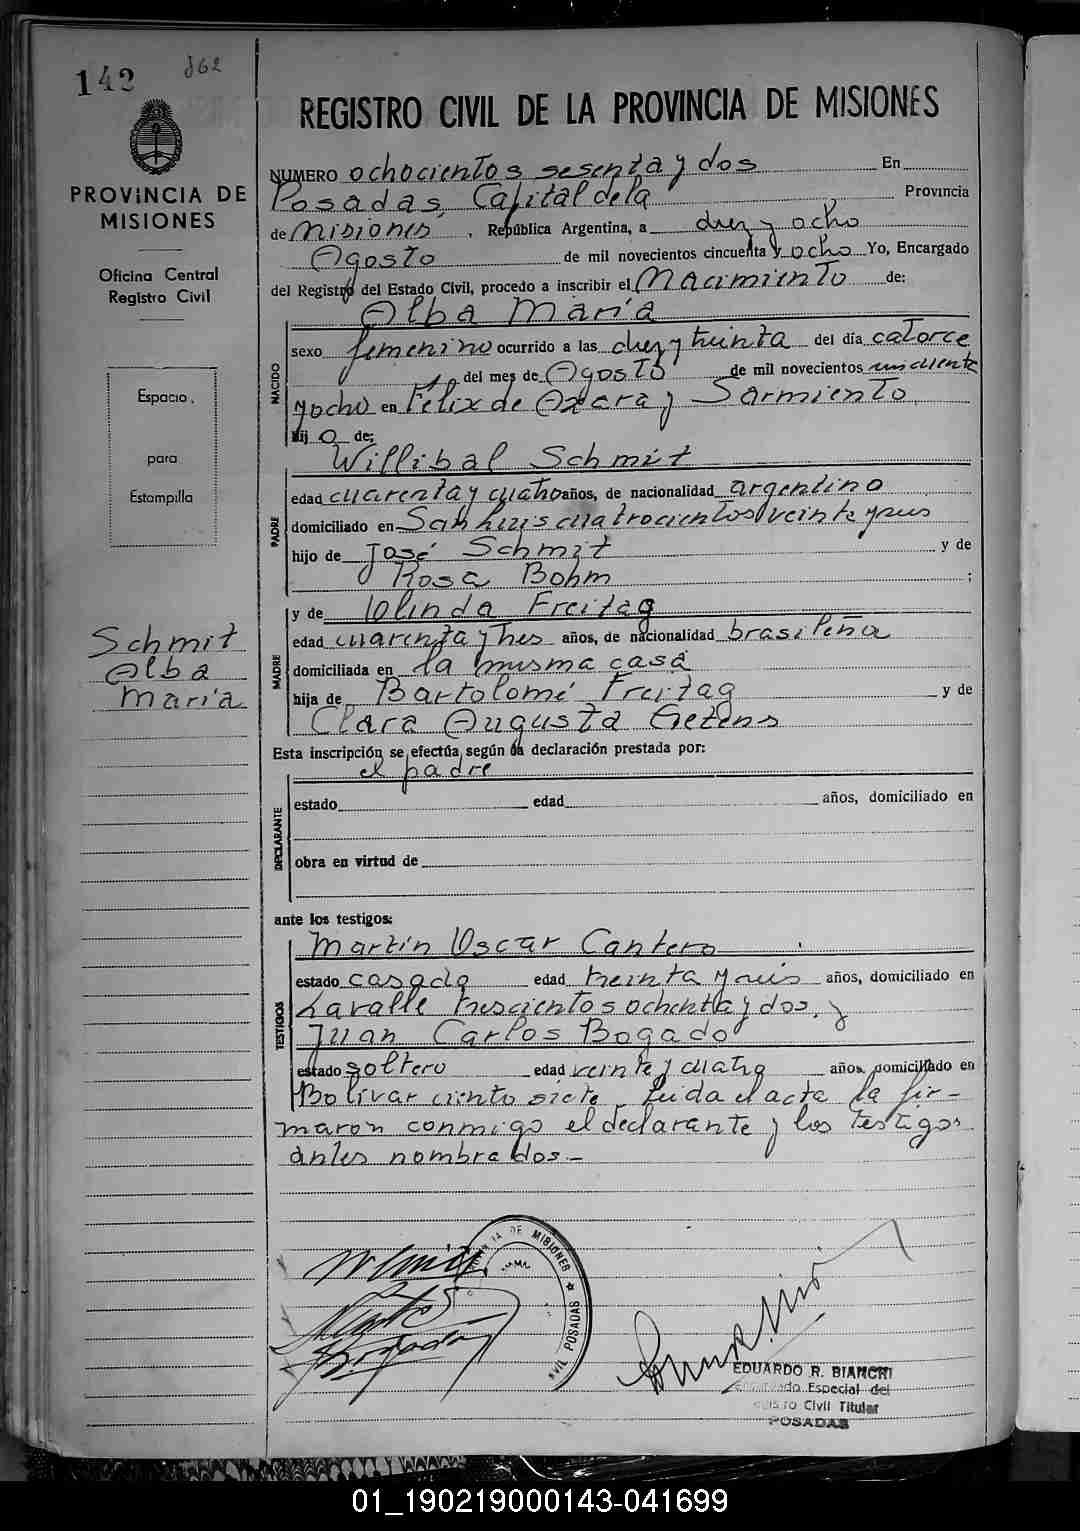 142 862
PROVINCIA DE
MISIONES
Oficina Central
Registro Civil
Espacio
para
Estampilla
Schmit
Alba
María
REGISTRO CIVIL DE LA PROVINCIA DE MISIONES
NUMERO ochocientos sesenta y dos En
Posadas, Capital de la Provincia
de Misiones, República Argentina, a diez y ocho
Agosto de mil novecientos cincuenta y ocho Yo, Encargado
del Registro del Estado Civil, procedo a inscribir el Nacimiento de:
Alba María
NACIDO
sexo femenino ocurrido a las diez y treinta del día catorce
del mes de Agosto de mil novecientos cincuenta
y ocho en Félix de Azara y Sarmiento
hij a de:
Willibal Schmit
PADRE
edad cuarenta y cuatro años, de nacionalidad argentino
domiciliado en San Luis cuatrocientos veinte y seis
hijo de José Schmit y de
Rosa Bohm ;
y de Olinda Freitag
MADRE
edad cuarenta y tres años, de nacionalidad brasileña
domiciliada en la misma casa
hija de Bartolomé Freitag y de
Clara Augusta Getens
Esta inscripción se efectúa según la declaración prestada por:
el padre
DECLARANTE
estado edad años, domiciliado en
obra en virtud de
ante los testigos:
Martín Oscar Cantero
TESTIGOS
estado casado edad treinta y seis años, domiciliado en
Lavalle trescientos ochenta y dos, y
Juan Carlos Bogado
estado soltero edad veinte y cuatro años, domiciliado en
Bolívar ciento siete. Leida el acta la fir-
maron conmigo el declarante y los testigos
antes nombrados.-
DE MISIONES ★
CIVIL POSADAS
EDUARDO R. BIANCHI
Encargado Especial del
Registro Civil Titular
POSADAS
01_190219000143-041699